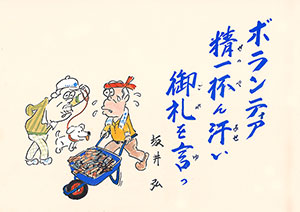 ボランティア
精一杯ん汗い
御礼を言っ
坂井 弘